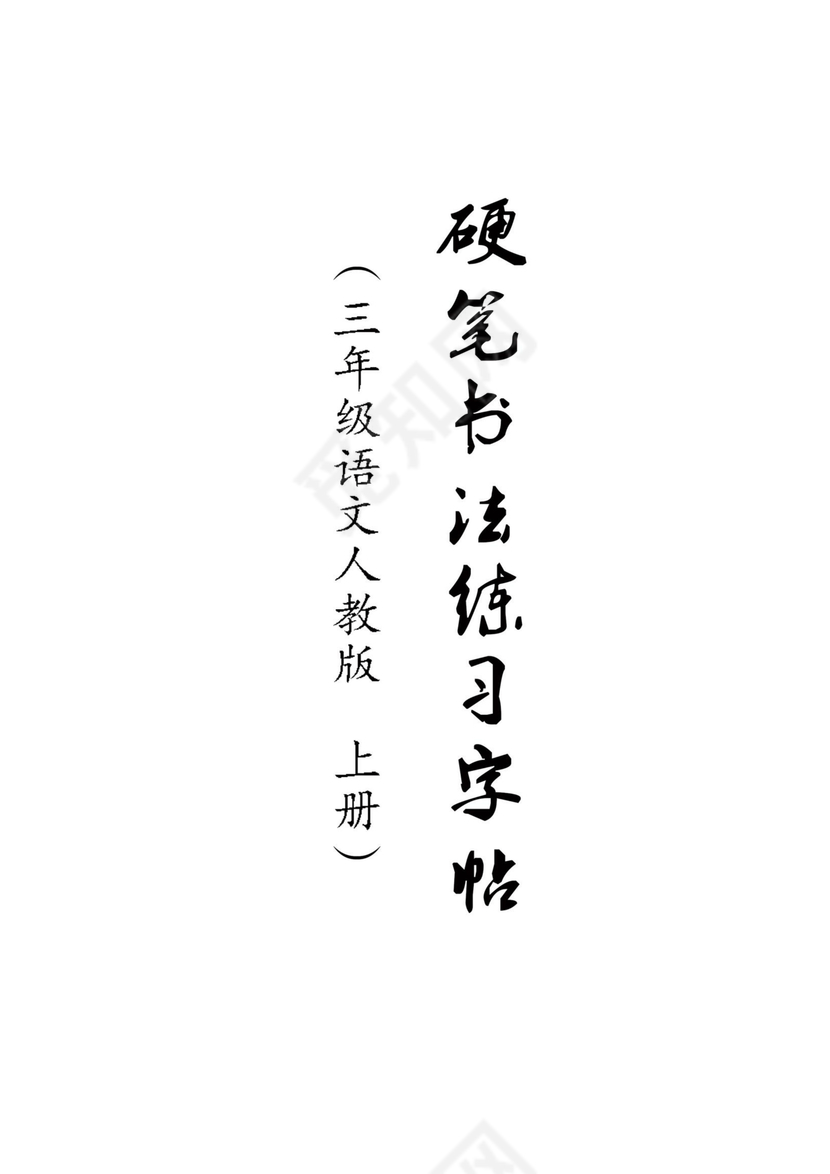 硬笔书法练习字帖
（三年级语文人教版 上册）
觅知网